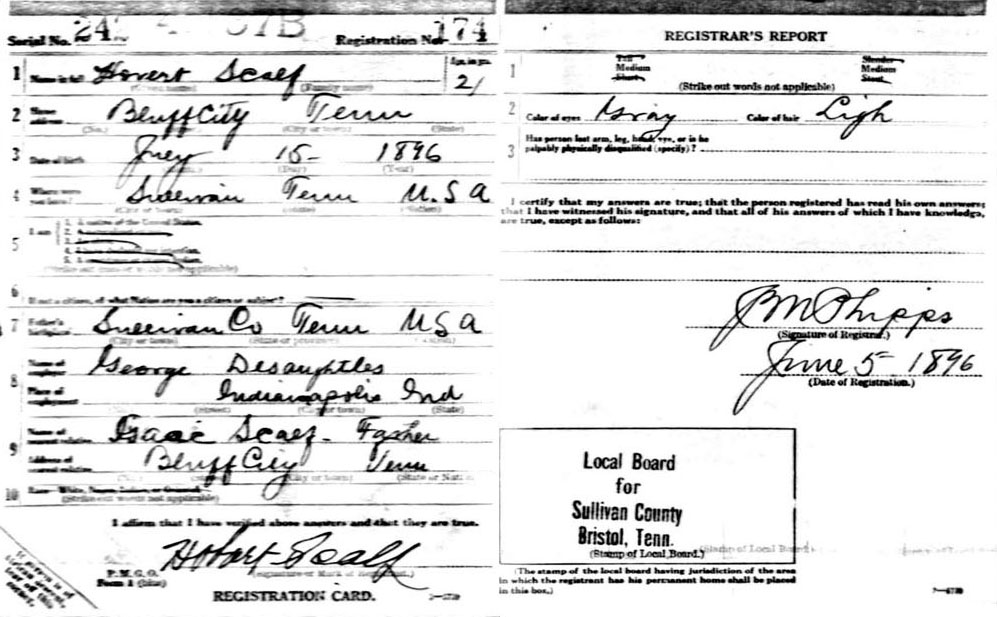 Serial No. 24
Registration No. 174
1 Name in full Hovert Scalf Age, in yrs. 21
(Given name) (Family name)
2 Home address Bluff City Tenn
(No.) (City or town) (State)
3 Date of birth July 15- 1896
(Day) (Year)
4 Where were you born? Sullivan Tenn U.S.A
(City or town) (State) (Nation)
5 I am
1. A native of the United States.
2.
3.
4.
5.
(Strike out lines or words not applicable)
6 If not a citizen, of what Nation are you a citizen or subject?
7 Father's birthplace Sullivan Co Tenn U S A
(City or town) (State or province)
8 Name of employer George Desaughtles
Place of employment Indianapolis Ind
(Street) (City or town) (State)
9 Name of nearest relative Isaac Scalf - Father
Address of nearest relative Bluff City Tenn
(City or town) (State or Nation)
10 Race—White, Negro, Indian, or Oriental
(Strike out words not applicable)
I affirm that I have verified above answers and that they are true.
Hobart Scalf
P. M. G. O.
Form 1 (blue)
(Signature or Mark of Registrant.)
REGISTRATION CARD.
REGISTRAR'S REPORT
1 Tall Medium Short Slender Medium Stout
(Strike out words not applicable)
2 Color of eyes Gray Color of hair Ligh
3 Has person lost arm, leg, hand, eye, or is he
palpably physically disqualified (specify)?
I certify that my answers are true; that the person registered has read his own answers;
that I have witnessed his signature, and that all of his answers of which I have knowledge,
are true, except as follows:
J M Phipps
(Signature of Registrar.)
June 5 1896
(Date of Registration.)
Local Board
for
Sullivan County
Bristol, Tenn.
(Stamp of Local Board.)
(The stamp of the local board having jurisdiction of the area
in which the registrant has his permanent home shall be placed
in this box.)